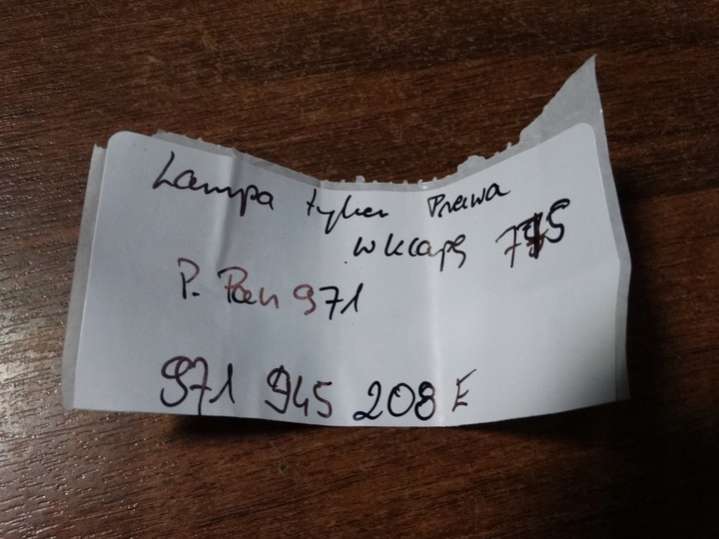 Lampa tylna Prawa
w klapę 775
P. Pan 971
971 945 208 E